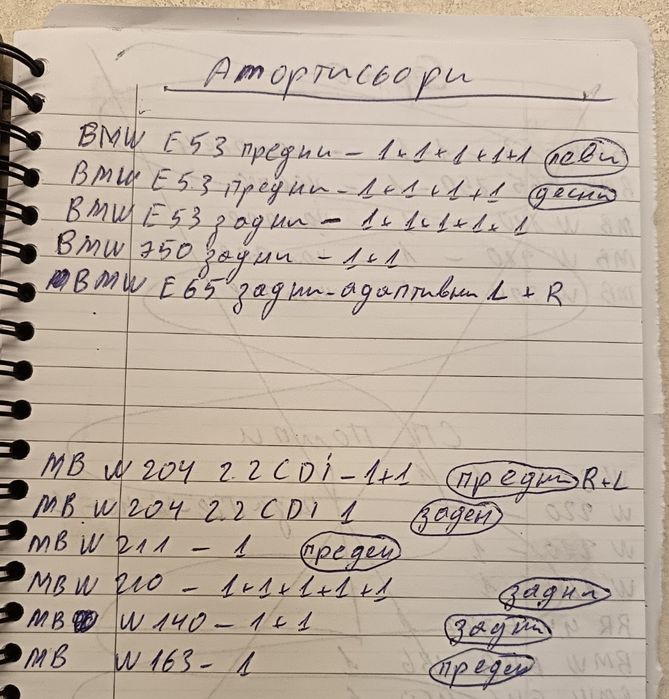 Амортисьори
BMW E53 предни - 1+1+1+1+1 леви
BMW E53 предни - 1+1+1+1 десни
BMW E53 задни - 1+1+1+1+1
BMW 750 задни - 1+1
BMW E65 задни-адаптивни L + R
MB W204 2.2 CDi - 1+1 предни R+L
MB W204 2.2 CDi 1 заден
MB W211 - 1 преден
MB W210 - 1+1+1+1+1 задни
MB W140 - 1+1 задни
MB W163 - 1 преден